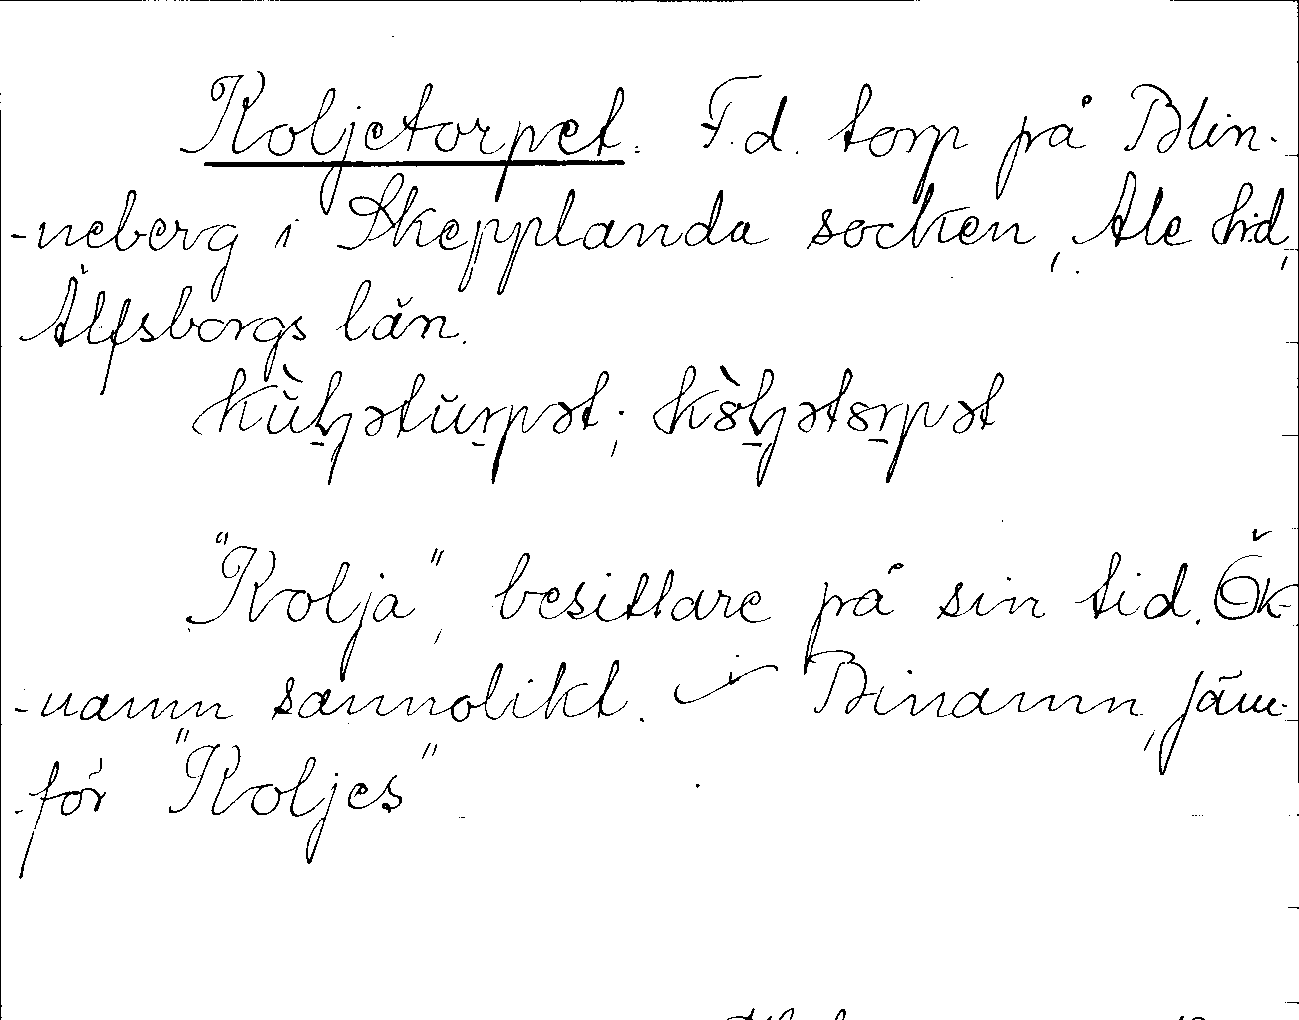 Koljetorpet. F.d. torp på Blin-
-neberg i Skepplanda socken, Ale hd,
Älfsborgs län.
"Kolja", besittare på sin tid. Ök-
-namn sannolikt. Binamn, jäm-
-för "Koljes"